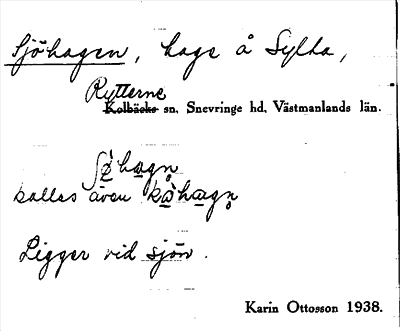 Sjöhagen, hage å Sylta,
Rytterne
Kolbäcks sn, Snevringe hd, Västmanlands län.
ʃø̀hagn̥
kallas även kø̀hagn̥
Ligger vid sjön.
Karin Ottosson 1938.